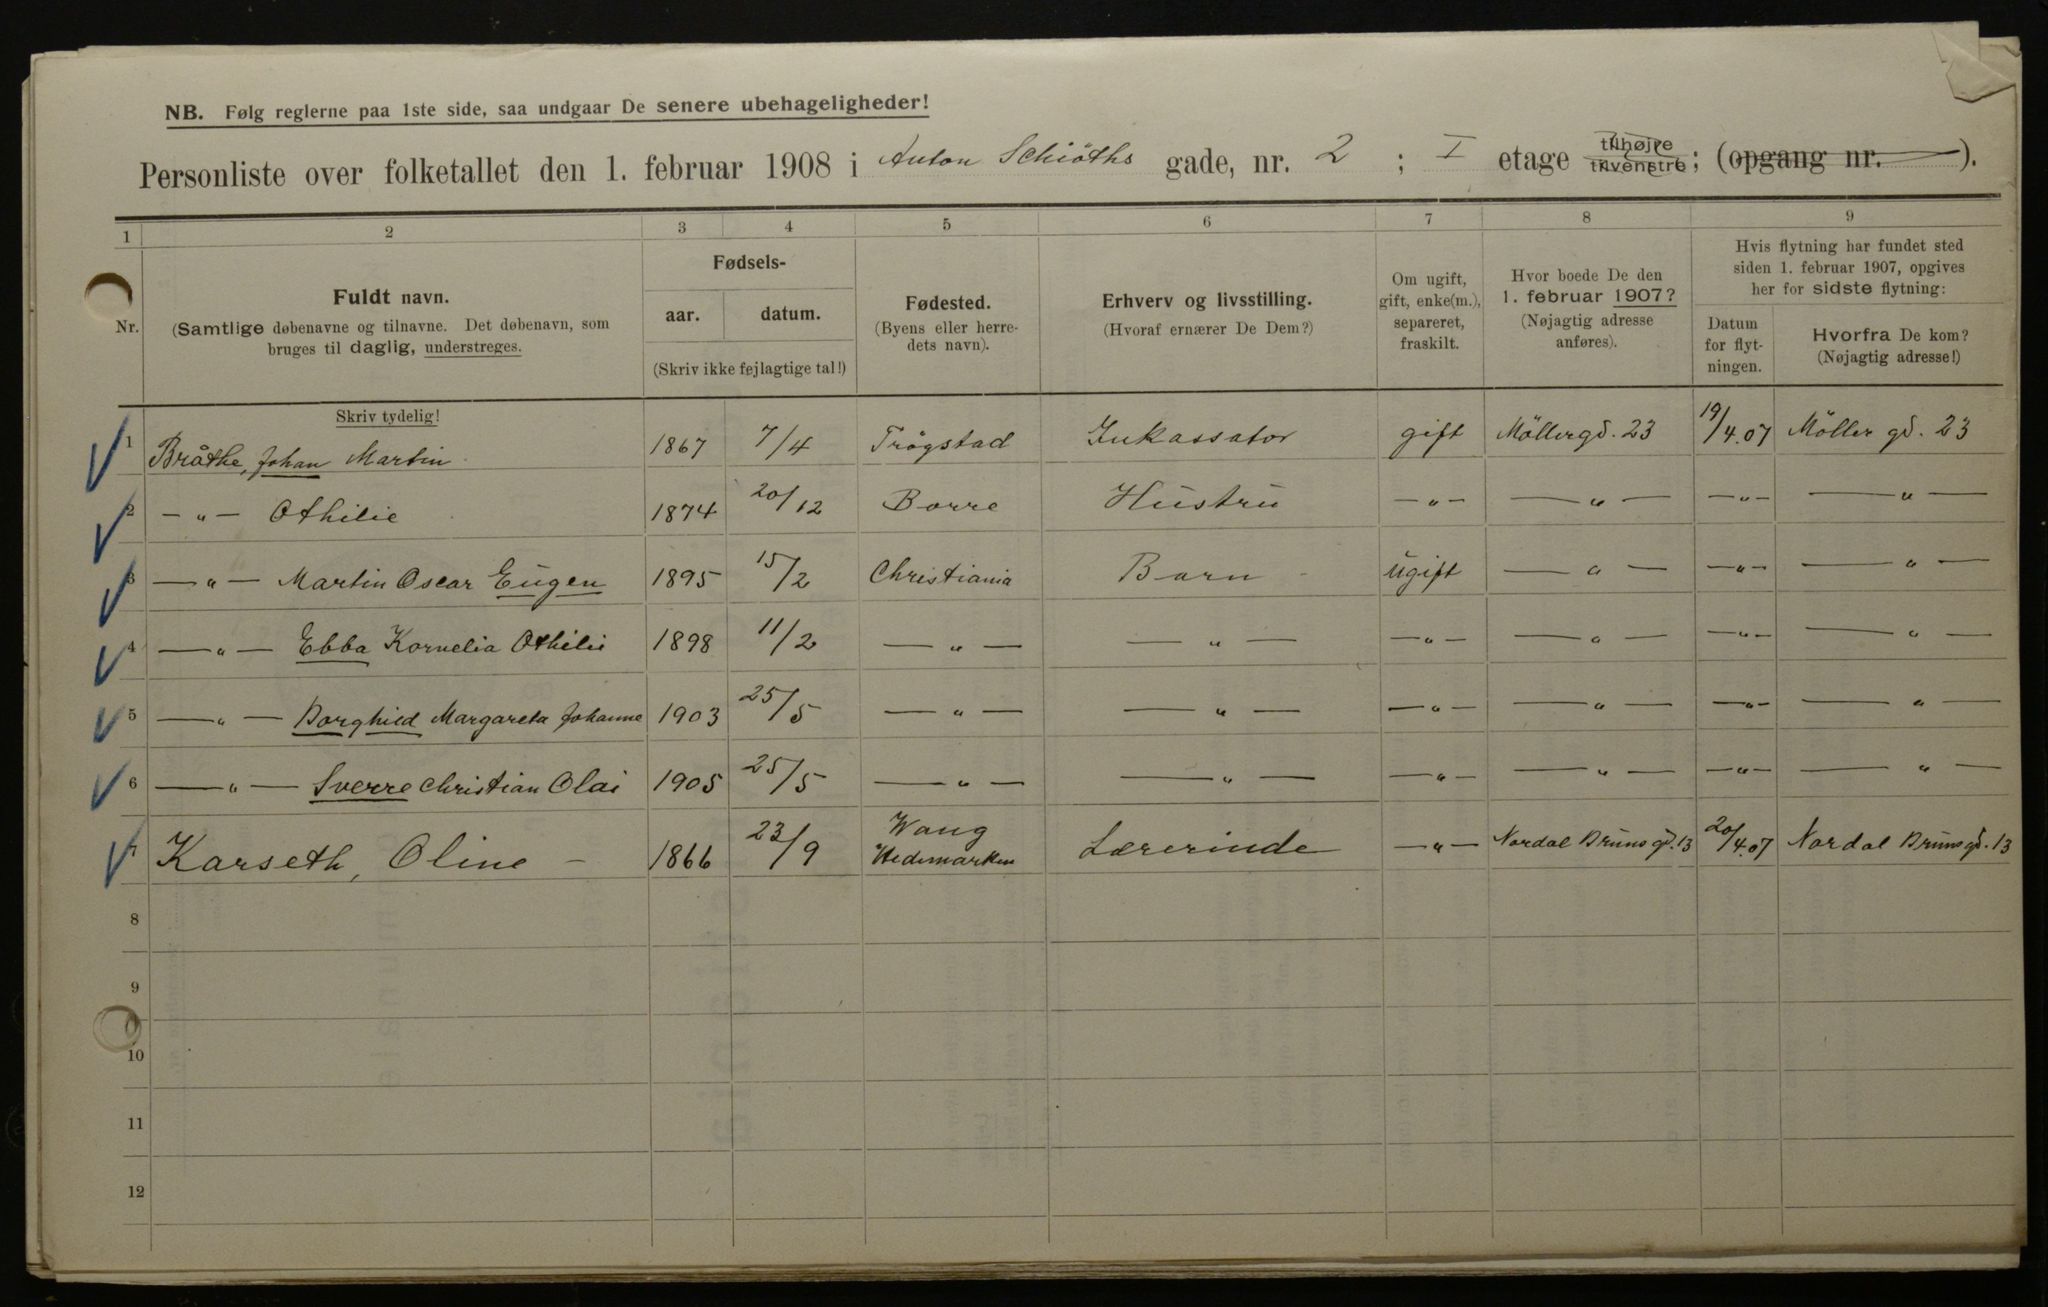 NB. Følg reglerne paa 1ste side, saa undgaar De senere ubehageligheder!
Personliste over folketallet den 1. februar 1908 i Anton Schiöths gade, nr. 2 ; I etage tilhøjre tilvenstre; (opgang nr. ).
1 2 3 4 5 6 7 8 9
Nr.
Fuldt navn.
(Samtlige døbenavne og tilnavne. Det døbenavn, som
bruges til daglig, understreges.
Skriv tydelig!
Fødsels-
aar. datum.
(Skriv ikke fejlagtige tal!)
Fødested.
(Byens eller herre-
dets navn).
Erhverv og livsstilling.
(Hvoraf ernærer De Dem?)
Om ugift,
gift, enke(m.),
separeret,
fraskilt.
Hvor boede De den
1. februar 1907?
(Nøjagtig adresse
anføres).
Hvis flytning har fundet sted
siden 1. februar 1907, opgives
her for sidste flytning:
Datum
for flyt-
ningen.
Hvorfra De kom?
(Nøjagtig adresse!)
1 Bråthe, Johan Martin 1867 7/4 Trögstad Inkassator gift Möllergd. 23 19/4.07 Möller gd. 23
2 — " — Othilie 1874 20/12 Borre Hustru — " — — " — — " — — " —
3 — " — Martin Oscar Eugen 1895 15/2 Christiania Barn ugift — " — — " — — " —
4 — " — Ebba Kornelia Othilie 1898 11/2 — " — — " — — " — — " — — " — — " —
5 — " — Borghild Margareta Johanne 1903 25/5 — " — — " — — " — — " — — " — — " —
6 — " — Sverre Christian Olai 1905 25/5 — " — — " — — " — — " — — " — — " —
7 Karseth, Oline — 1866 23/9 Wang Hedemarken Lærerinde — " — Nordal Bruns gd. 13 20/4.07 Nordal Bruns gd. 13
8
9
10
11
12